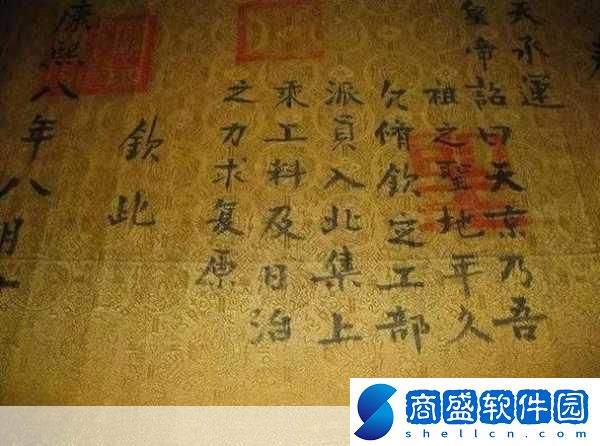 天承運
皇帝詔曰天京乃吾
祖之聖地年久
欠脩欽定工部
派員入北集上
乘工料及日治
之力求复原
欽此
康熙八年八月
商盛软件园
shellcn.com